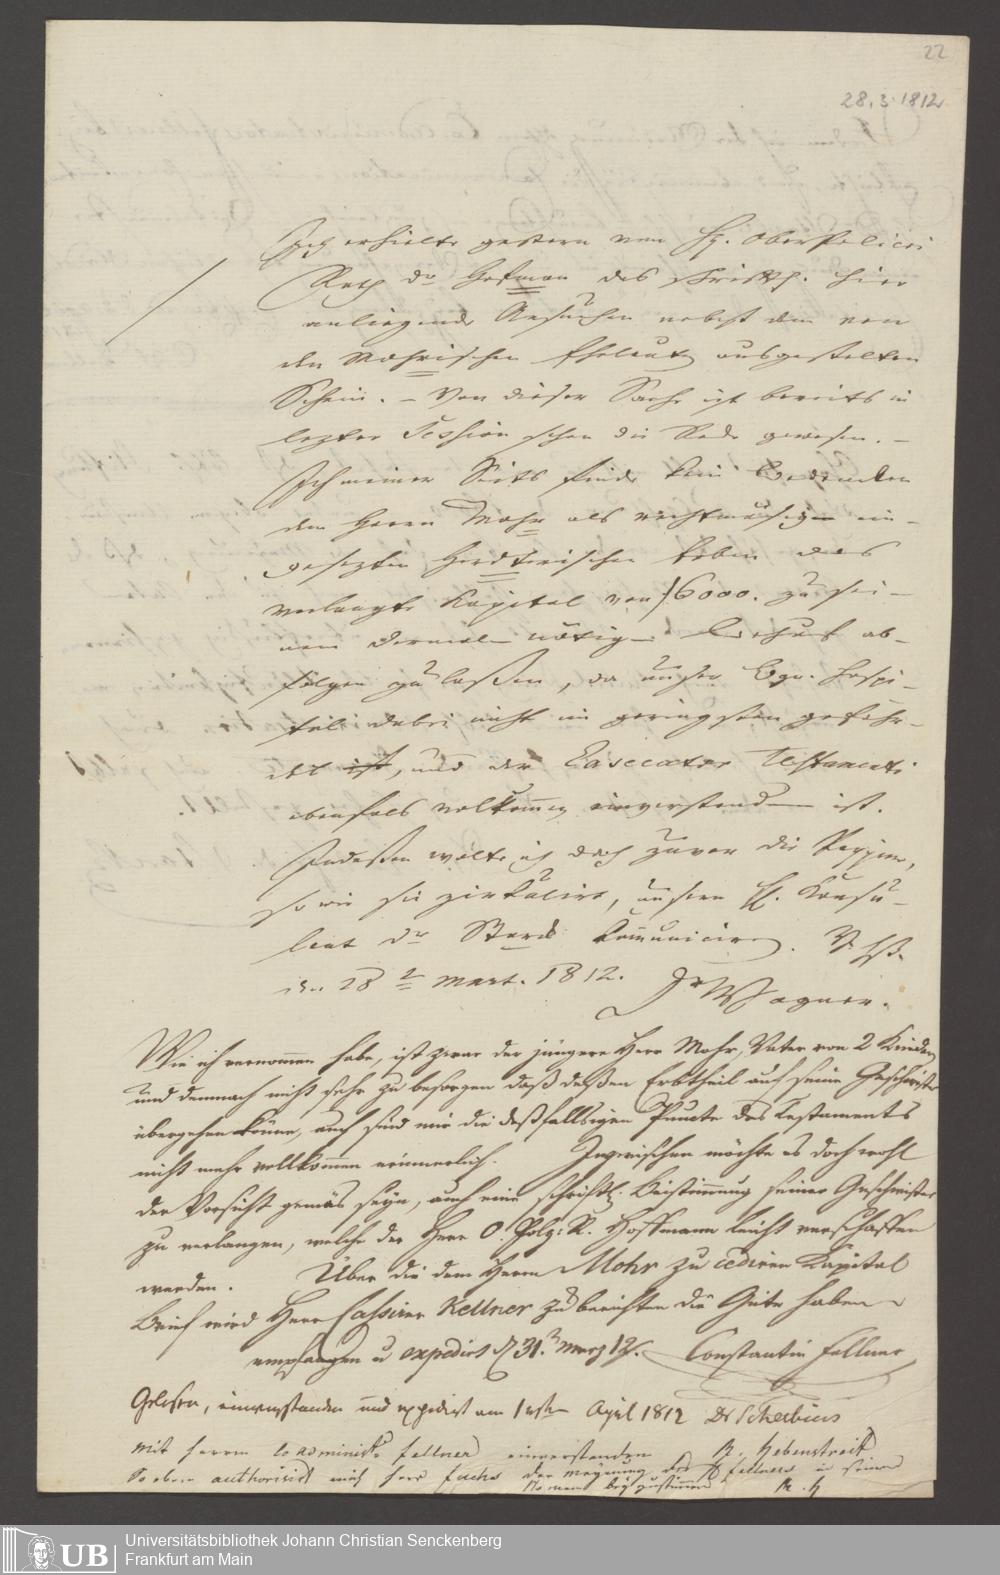 22
28.3.1812
Ich erhielte gestern von H. OberPolicei
Rath Dr Hofman das schriftl. hier
anliegende Ansuchen nebst dem von
den Mohrischen Eheleuten ausgestelten
Schein. – Von dieser Sache ist bereits in
lezter Session schon die Rede gewesen. –
Ich meiner Seits finde kein Bedencken
dem Herrn Mohr als rechtmäsigen ein-
gesezten Erben das
verlangte Kapital von f 6000. zu sei-
nem dermalen nötigen Behuf ab-
folgen zu laßen, da unser Bgr. Hospi-
tal dabei nicht im geringsten gefähr-
det ist, und der Executor Testamenti
ebenfals volkommen einverstanden ist.
Indeßen wolte ich doch zuvor die Papiere,
so wie sie zirkulirt, unsern H. Konsu-
lent Dr Starck kommuniciren. V. Hß.
den 28 Mart. 1812.
Jr Wagner.
Wie ich vernommen habe, ist zwar der jüngere Herr Mohr, Vater von 2 Kindern
und demnach nicht sehr zu besorgen daß deßen Erbtheil auf seine Geschwister
übergehen könne, auch sind mir die deßfallsigen Puncte des Testaments
nicht mehr vollkommen erinnerlich. Inzwischen möchte es doch wohl
der Vorsicht gemäs seyn, auch eine schriftl. Beistimmung seiner Geschwister
zu verlangen, welche der Herr O. Polz: R. Hoffmann leicht verschaffen
werden. Über die dem Herrn Mohr zu cediren Kapital
Brief wird Herr Cassirer Kellner zu berichten die Güte haben
empfangen u expedirt d 31. Merz 12. Constantin Fellner
Gelesen, einverstanden und expedirt am 1ten April 1812 Dr Scherbius
Mit Herrn Coadminist. Fellner einverstanden R. Hebenstreit
So eben authorisirt mich Herr Fuchs der Meynung des H Fellners in seinem
Namen beyzustimmen R. H
Universitätsbibliothek Johann Christian Senckenberg
Frankfurt am Main
UB